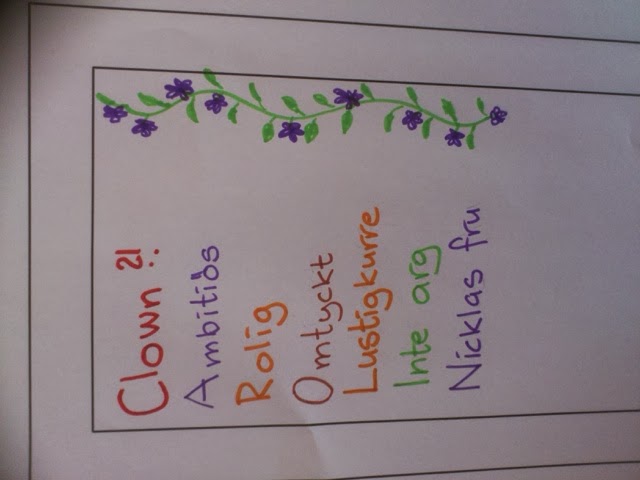 Clown ?!
Ambitiös
Rolig
Omtyckt
Lustigkurre
Inte arg
Nicklas fru